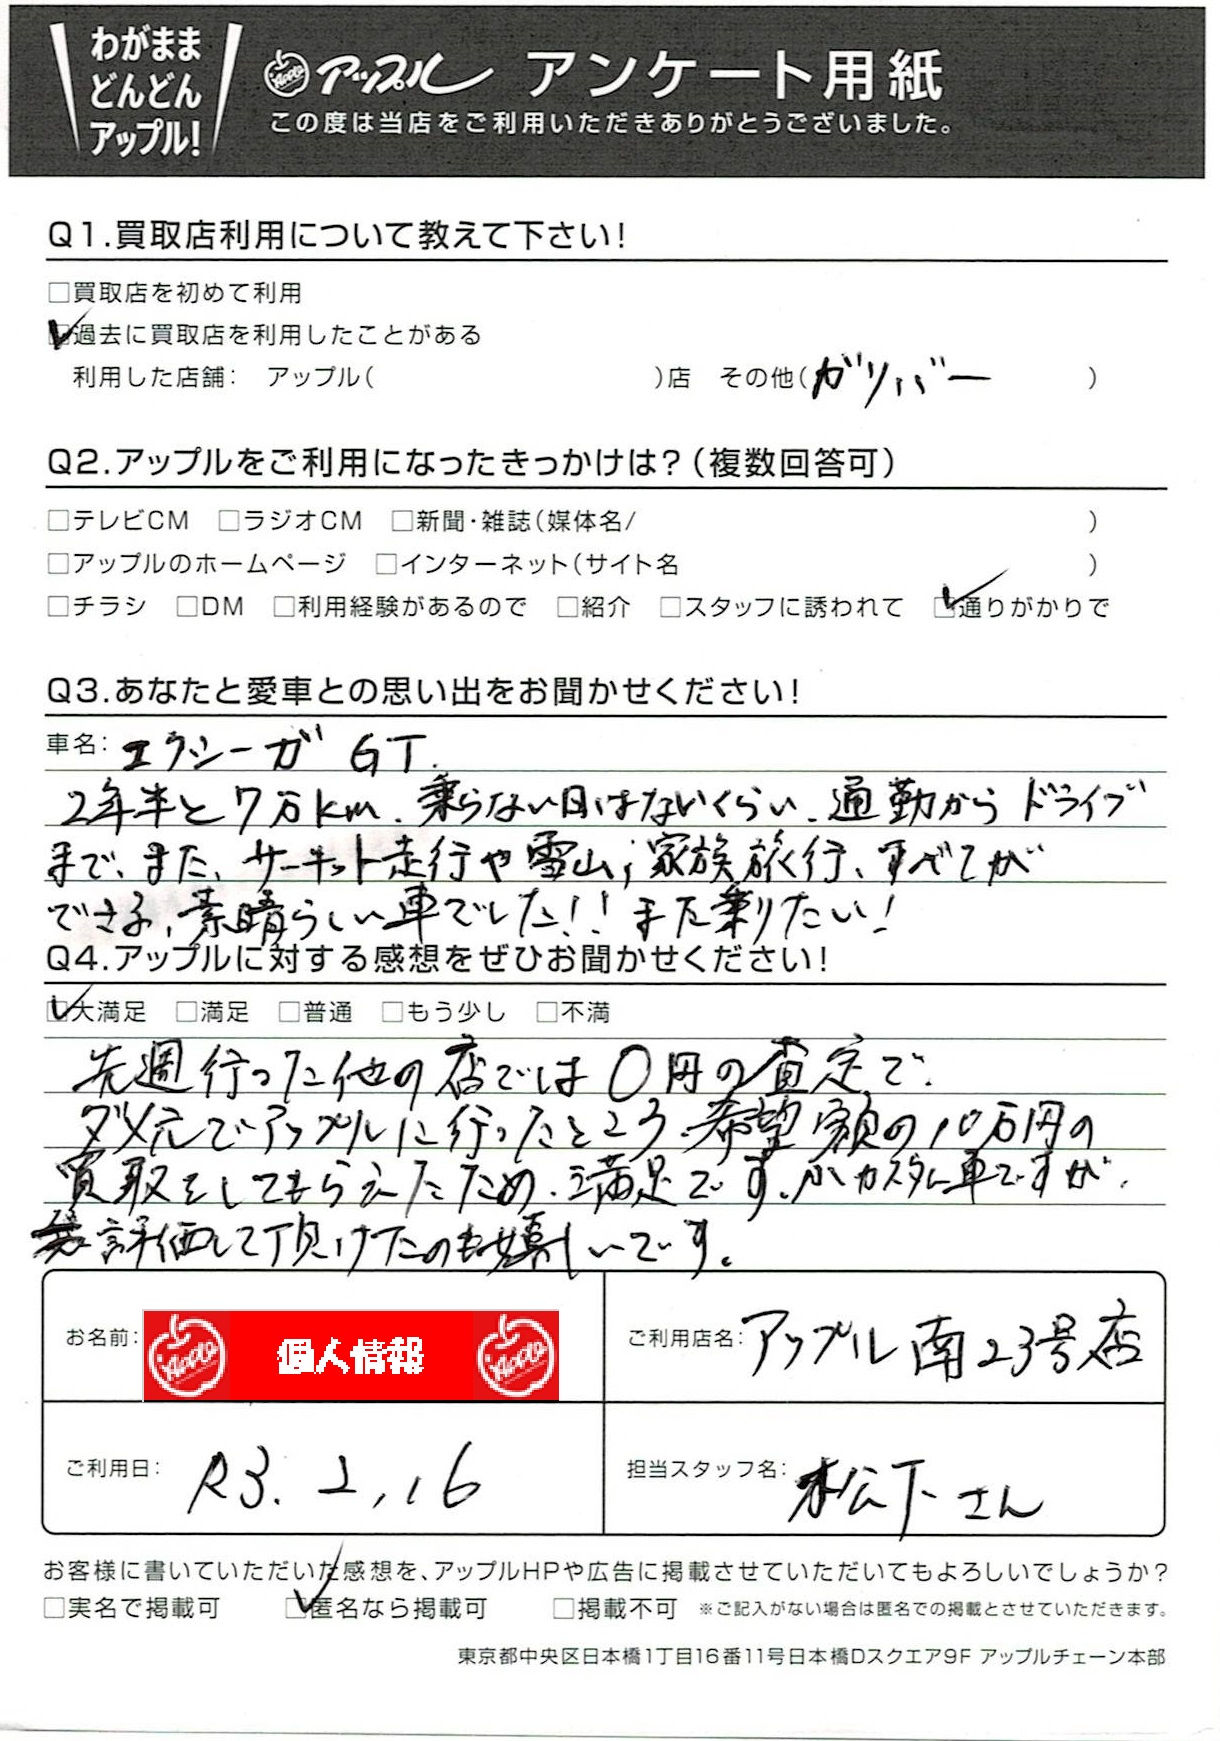 わがまま
どんどん
アップル!
Apple アップル アンケート用紙
この度は当店をご利用いただきありがとうございました。
Q1.買取店利用について教えて下さい!
□買取店を初めて利用
☑過去に買取店を利用したことがある
利用した店舗: アップル( )店 その他(ガリバー )
Q2.アップルをご利用になったきっかけは?(複数回答可)
□テレビCM □ラジオCM □新聞・雑誌(媒体名/ )
□アップルのホームページ □インターネット(サイト名 )
□チラシ □DM □利用経験があるので □紹介 □スタッフに誘われて ☑通りがかりで
Q3.あなたと愛車との思い出をお聞かせください!
車名: エクシーガ GT.
2年半と7万km、乗らない日はないくらい、通勤からドライブ
まで、また、サーキット走行や雪山、家族旅行、すべてが
できる、素晴らしい車でした!!また乗りたい!
Q4.アップルに対する感想をぜひお聞かせください!
☑大満足 □満足 □普通 □もう少し □不満
先週行った他の店では0円の査定で、
ダメ元でアップルに行ったところ、希望額の10万円の
買取をしてもらえたため、満足です。カスタム車ですが、
評価して頂けたのも嬉しいです。
お名前: Apple 個人情報 Apple
ご利用店名: アップル南23号店
ご利用日: R3.2.16
担当スタッフ名: 松下さん
お客様に書いていただいた感想を、アップルHPや広告に掲載させていただいてもよろしいでしょうか?
□実名で掲載可 ☑匿名なら掲載可 □掲載不可 ※ご記入がない場合は匿名での掲載とさせていただきます。
東京都中央区日本橋1丁目16番11号日本橋Dスクエア9F アップルチェーン本部